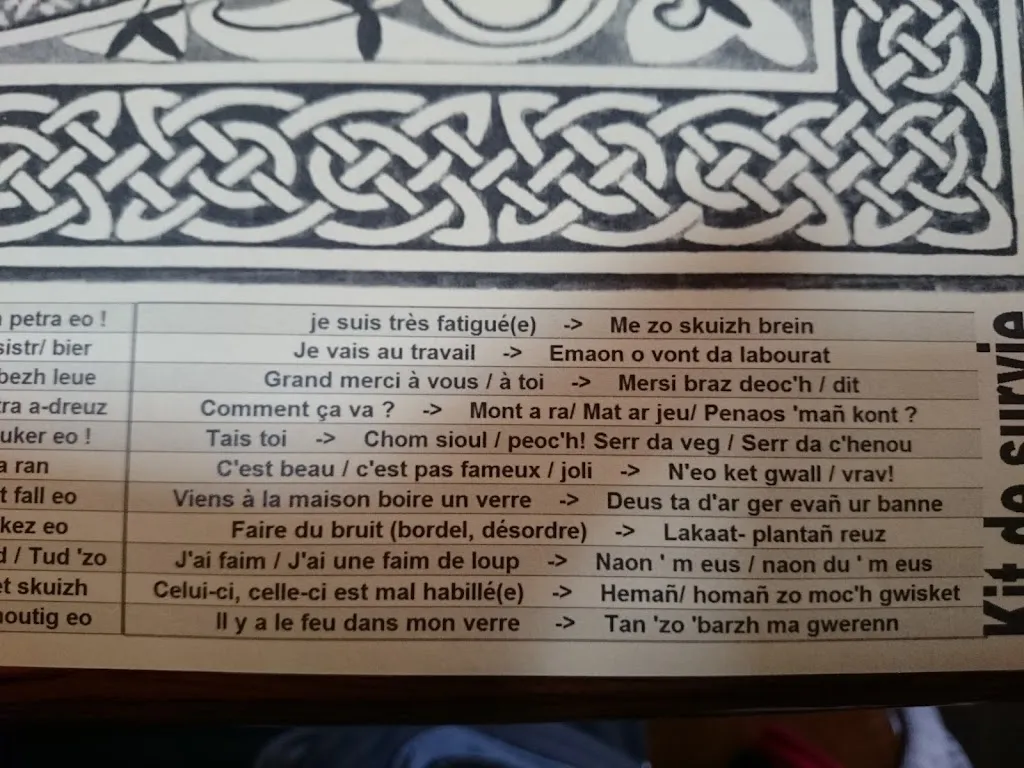 petra eo !
sistr/ bier
bezh leue
a-dreuz
uker eo !
a ran
fall eo
kez eo
/ Tud 'zo
skuizh
outig eo
je suis très fatigué(e) -> Me zo skuizh brein
Je vais au travail -> Emaon o vont da labourat
Grand merci à vous / à toi -> Mersi braz deoc'h / dit
Comment ça va ? -> Mont a ra/ Mat ar jeu/ Penaos 'mañ kont ?
Tais toi -> Chom sioul / peoc'h! Serr da veg / Serr da c'henou
C'est beau / c'est pas fameux / joli -> N'eo ket gwall / vrav!
Viens à la maison boire un verre -> Deus ta d'ar ger evañ ur banne
Faire du bruit (bordel, désordre) -> Lakaat- plantañ reuz
J'ai faim / J'ai une faim de loup -> Naon ' m eus / naon du ' m eus
Celui-ci, celle-ci est mal habillé(e) -> Hemañ/ homañ zo moc'h gwisket
Il y a le feu dans mon verre -> Tan 'zo 'barzh ma gwerenn
Kit de survie